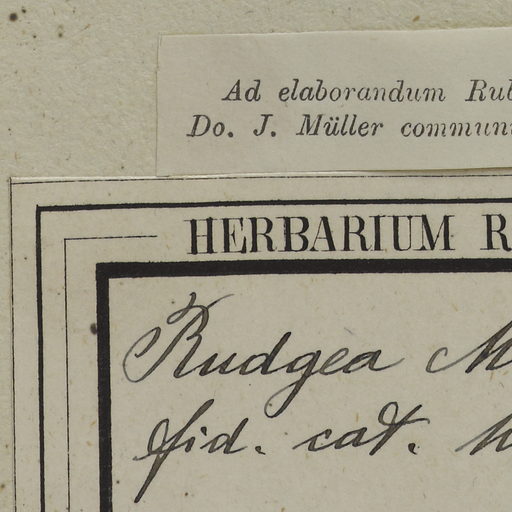 Ad elaborandum Rub
Do. J. Müller communi
HERBARIUM R
Rudgea M
fid. cat.